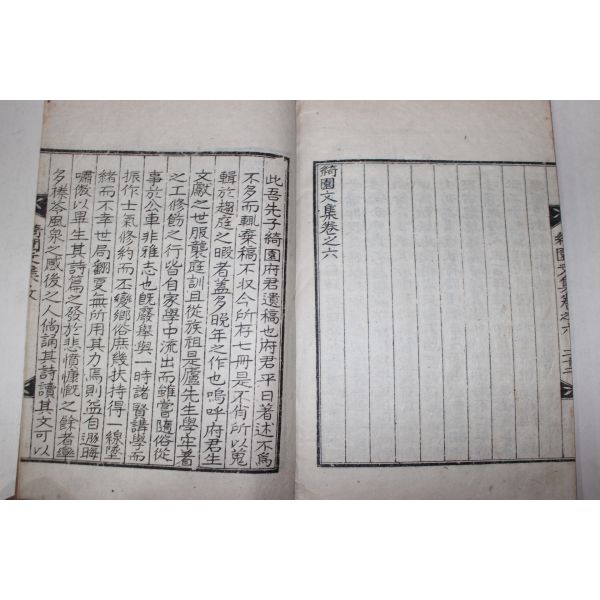 綺園文集卷之六
綺園文集卷之六
此吾先子綺園府君遺稿也府君平日著述不爲
不多而輒棄稿不收今所存七冊是不肖所以蒐
輯於趨庭之暇者盖多晩年之作也嗚呼府君生
文獻之世服襲庭訓且從族祖是廬先生學定著
之工修飭之行皆自家學中流出而雖嘗隨俗從
事於公車非雅志也旣廢擧與一時諸賢講學而
振作士氣修約而丕變鄕俗庶幾扶持得一線墜
緖而不幸世局翻夏無所用其力焉則益自遯晦
嘯傲以畢生其詩篇之發於悲憤慷慨之餘者
多捲冷風泉之感後之人倘誦其詩讀其文可以
綺園文集 文